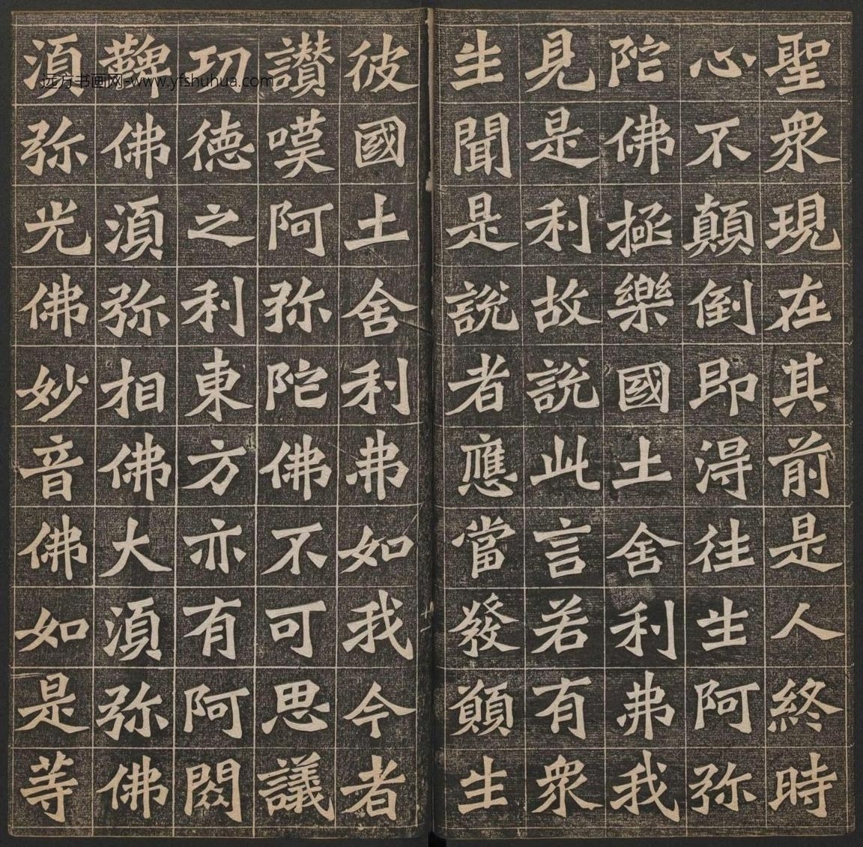 聖衆現在其前是人終時
心不顛倒即淂往生阿弥
陀佛極樂國土舍利弗我
見是利故說此言若有衆
生聞是說者應當發願生
彼國土舍利弗如我今者
讃嘆阿弥陀佛不可思議
功德之利東方亦有阿閦
鞞佛湏弥相佛大湏弥佛
湏弥光佛妙音佛如是等
远方书画网-www.yfshuhua.com